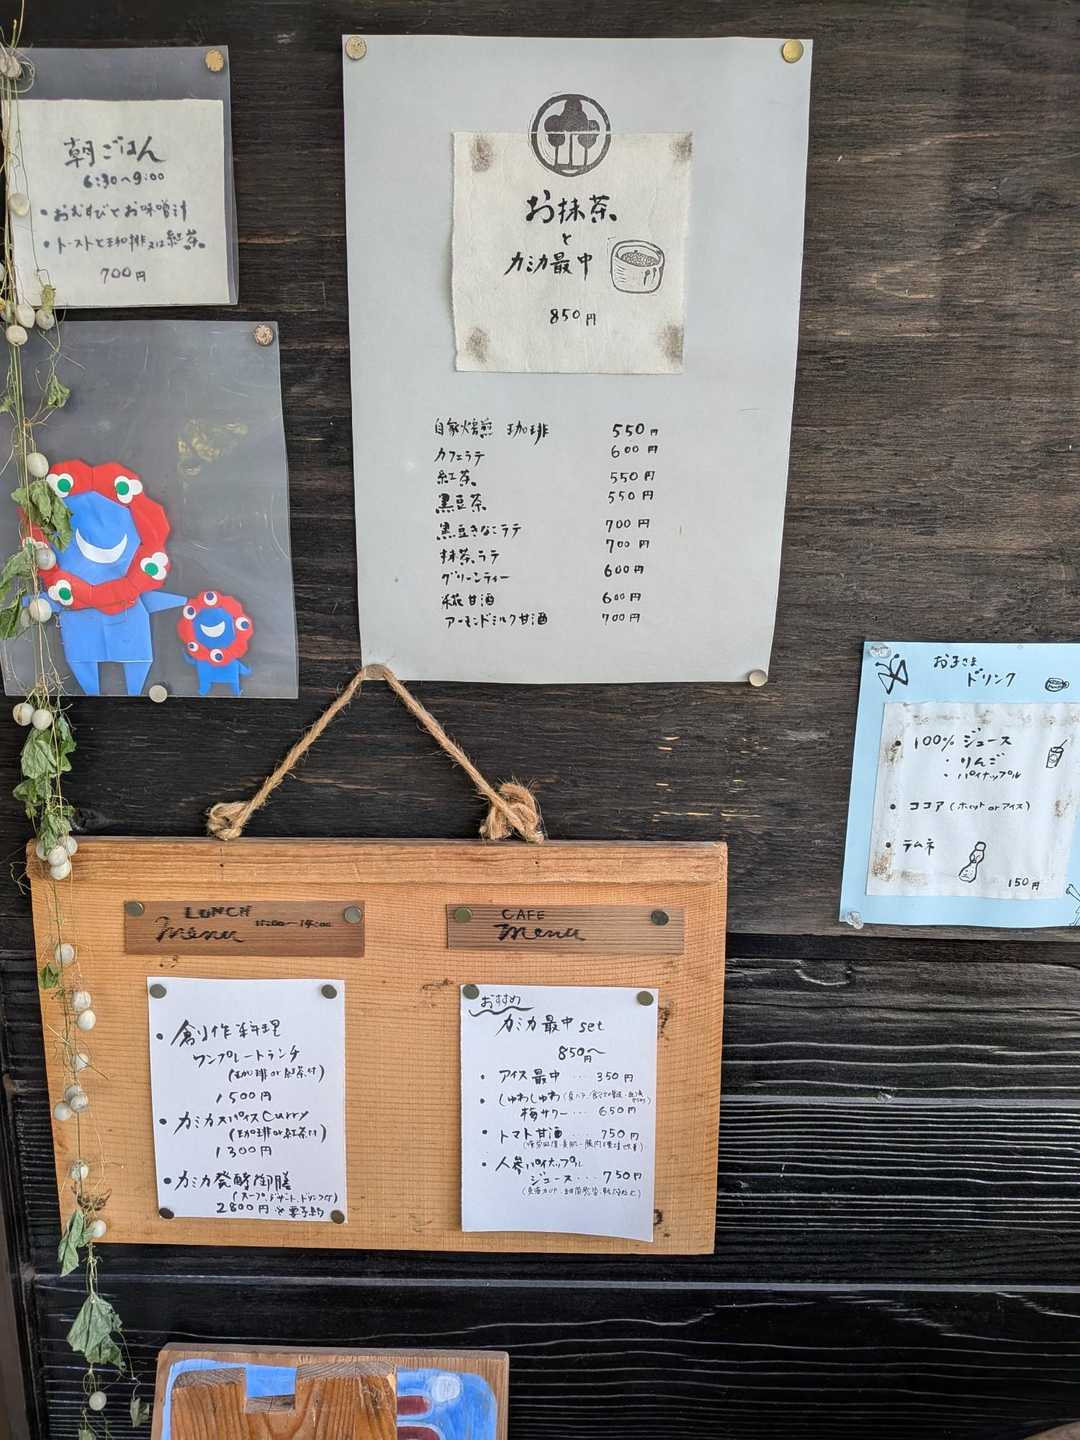 朝ごはん
6:30〜9:00
・おむすびとお味噌汁
・トーストと珈琲又は紅茶
700円
お抹茶
と
カミカ最中
850円
自家焙煎 珈琲 550円
カフェラテ 600円
紅茶 550円
黒豆茶 550円
黒豆きなこラテ 700円
抹茶ラテ 700円
グリーンティー 600円
糀甘酒 600円
アーモンドミルク甘酒 700円
お子さま
ドリンク
・100% ジュース
・りんご
・パイナップル
・ココア (ホット or アイス)
・ラムネ
150円
LUNCH
Menu 11:00〜14:00
・創作料理
ワンプレートランチ
(珈琲 or 紅茶付)
1500円
・カミカスパイスCurry
(珈琲or紅茶付)
1300円
・カミカ発酵御膳
(スープ、デザート、ドリンク付)
2800円 ※要予約
CAFE
Menu
おすすめ
カミカ最中 set
850円〜
・アイス最中 … 350円
・しゅわしゅわ
梅サワー … 650円
・トマト甘酒 … 750円
・人参パイナップル
ジュース … 750円